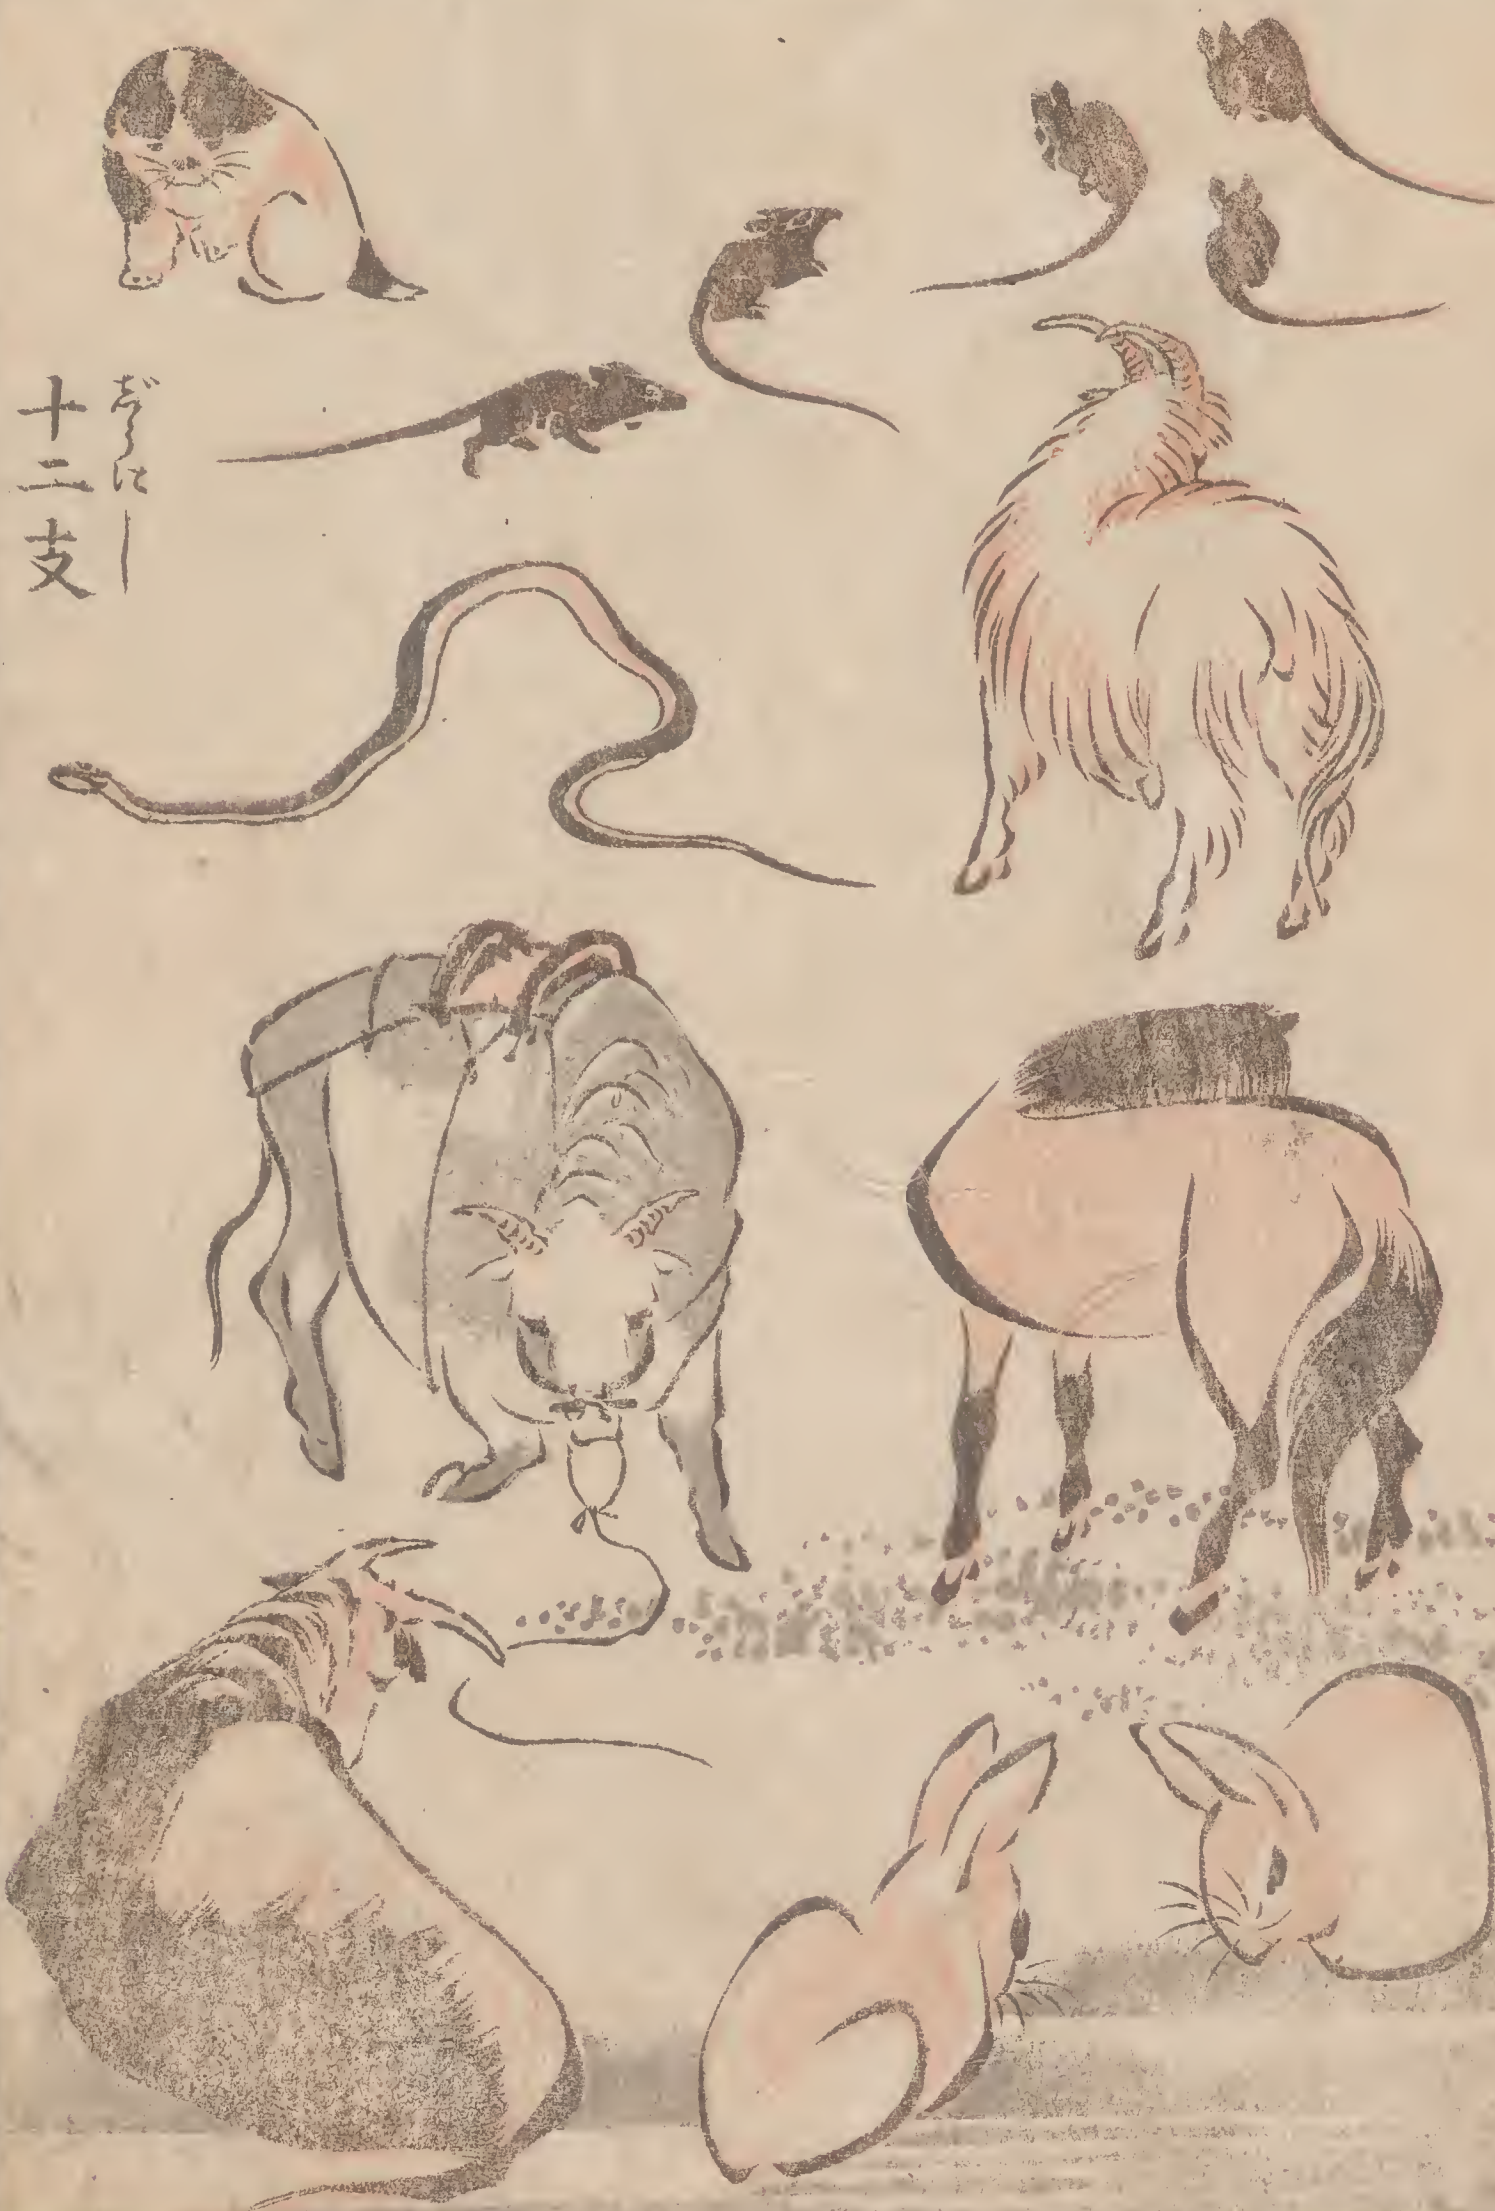 十二支
じうにし